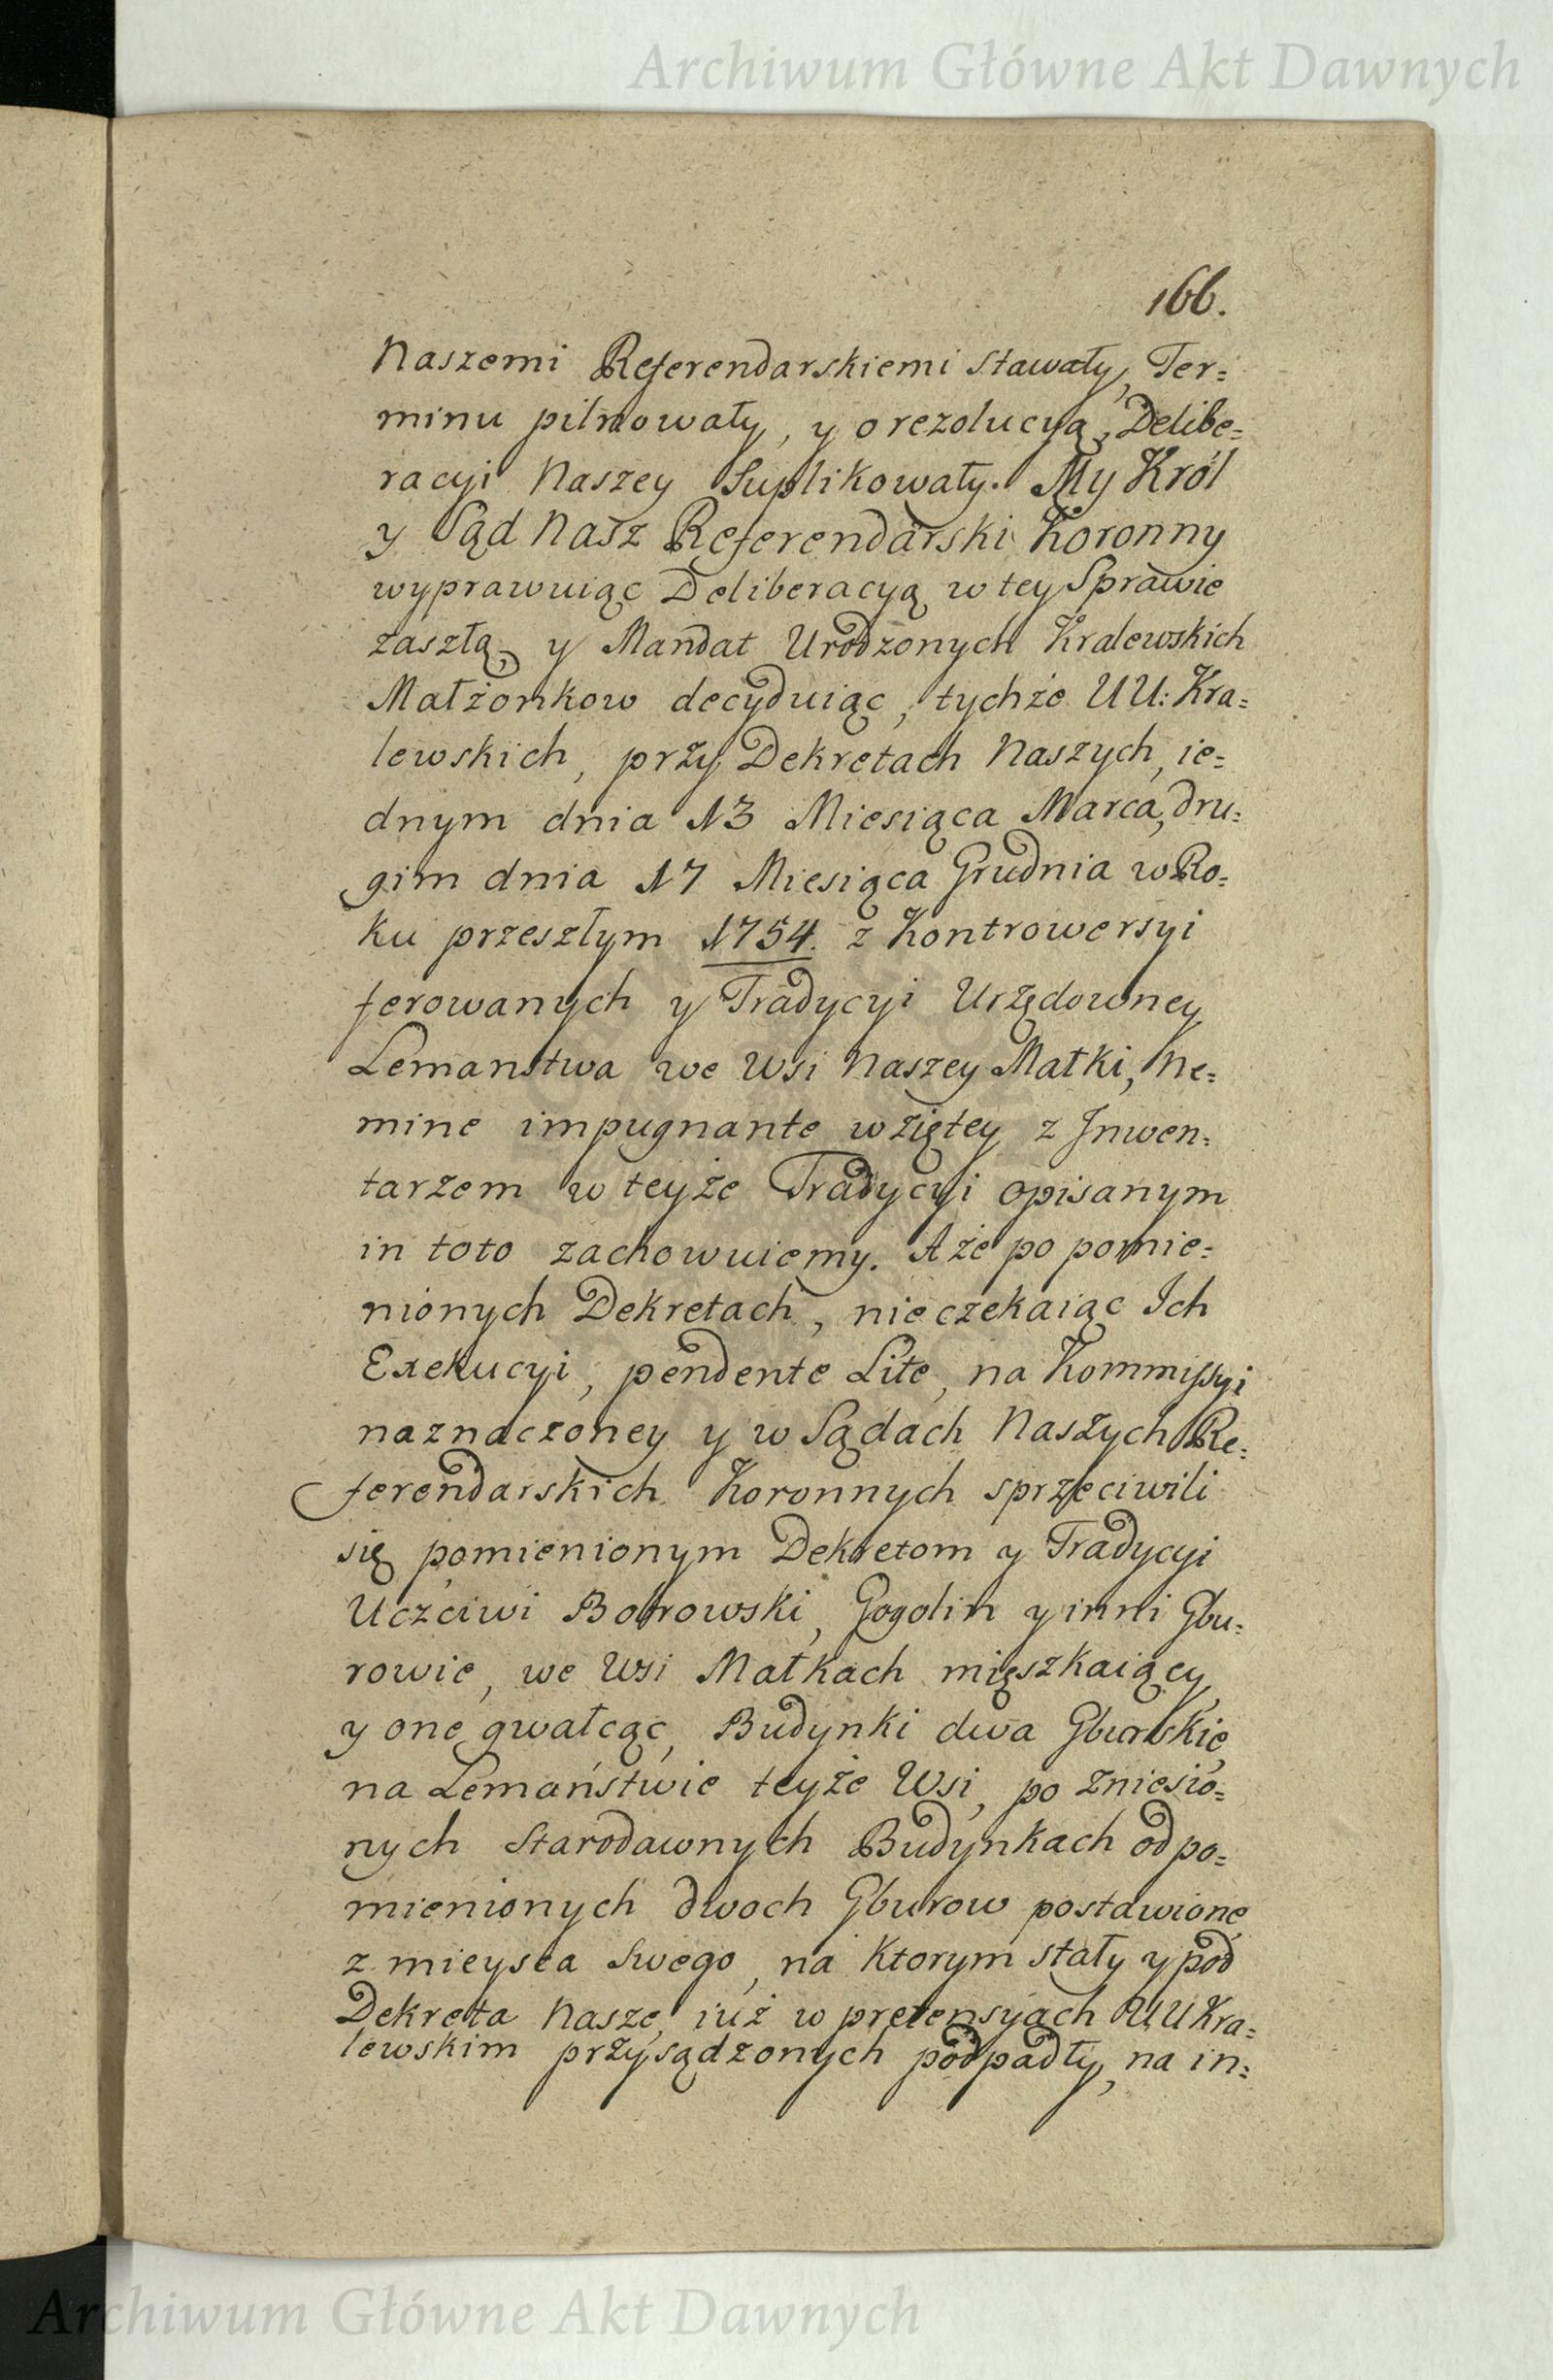 Archiwum Główne Akt Dawnych
166.
Naszemi Referendarskiemi stawały, Ter=
minu pilnowały, y o rezolucyą Delibe=
racyi Naszey Suplikowały. My Król
y Sąd Nasz Referendarski Koronny
wyprawuiąc Deliberacyą w tey Sprawie
zaszłą, y Mandat Urodzonych Kralewskich
Małżonkow decyduiąc, tychże UU: Kra=
lewskich, przy Dekretach Naszych, ie=
dnym dnia 13 Miesiąca Marca, dru=
gim dnia 17 Miesiąca Grudnia w Ro=
ku przeszłym 1754. z Kontrowersyi
ferowanych y Tradycyi Urzędowney
Lemanstwa we Wsi Naszey Matki, Ne=
mine impugnante wziętey z Jnwen=
tarzem w teyże Tradycyi opisanym
in toto zachowuiemy. A że po pomie=
nionych Dekretach, nieczekaiąc Ich
Exekucyi, pendente Lite, na Kommissyi
naznaczoney y w Sądach Naszych Re=
ferendarskich Koronnych sprzeciwili
się pomienionym Dekretom y Tradycyi
Uczciwi Borowski, Gogolin y inni Gbu=
rowie, we Wsi Matkach mięszkaiący,
y one gwałcąc, Budynki dwa Gburskie,
na Lemaństwie teyże Wsi, po zniesio=
nych Starodawnych Budynkach od po=
mienionych dwoch Gburow postawione
z mieysca Swego, na ktorym stały y pod
Dekreta Nasze, iuż w pretensyach UU Kra=
lewskim przysądzonych podpadły, na in=
Archiwum Główne Akt Dawnych